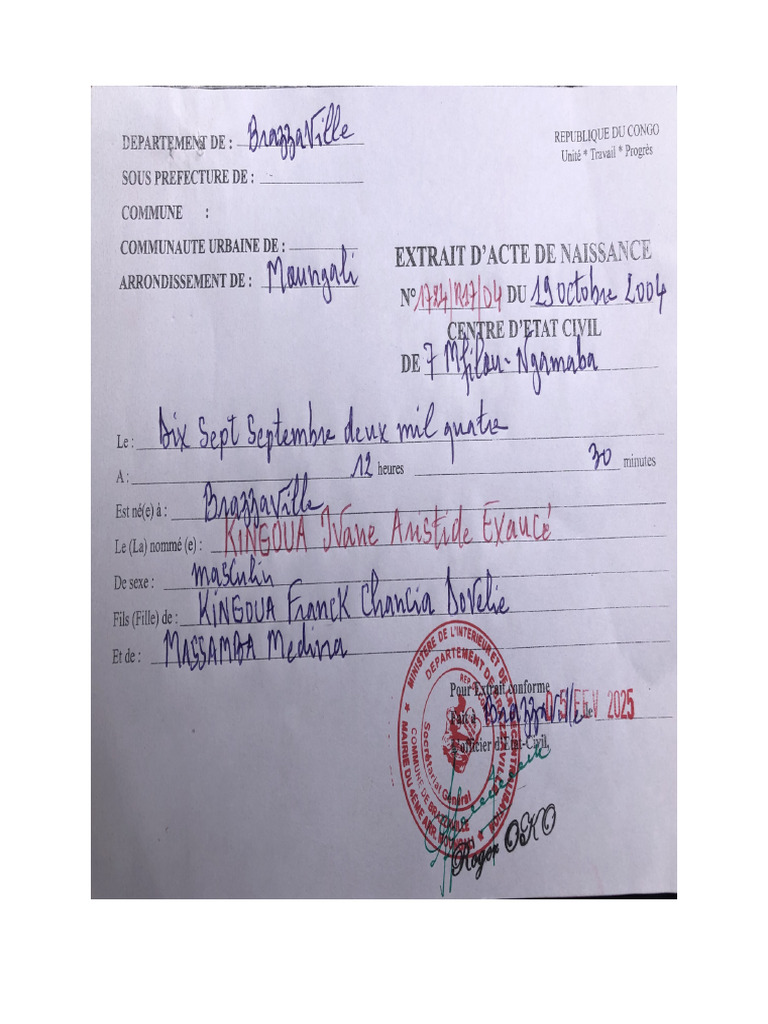 DEPARTEMENT DE : Brazzaville
REPUBLIQUE DU CONGO
Unité * Travail * Progrès
SOUS PREFECTURE DE :
COMMUNE :
COMMUNAUTE URBAINE DE :
ARRONDISSEMENT DE : Moungali
EXTRAIT D'ACTE DE NAISSANCE
N° 1784/R17/04 DU 19 octobre 2004
CENTRE D'ETAT CIVIL
DE 7 Mfilou-Ngamaba
Le : Dix Sept Septembre deux mil quatre
A : 12 heures 30 minutes
Est né(e) à : Brazzaville
Le (La) nommé (e) : KINGOUA Ivane Aristide Exaucé
De sexe : masculin
Fils (Fille) de : KINGOUA Franck Chancia Dovelie
Et de : MASSAMBA Medina
Pour Extrait conforme
Fait à Brazzaville le 05 FEV 2025
L'officier d'Etat-Civil,
MINISTERE DE L'INTERIEUR ET DE LA DECENTRALISATION
DEPARTEMENT DE BRAZZAVILLE
COMMUNE DE BRAZZAVILLE
MAIRIE DU 4EME ARR. MOUNGALI
Secrétariat Général
Roger OKO